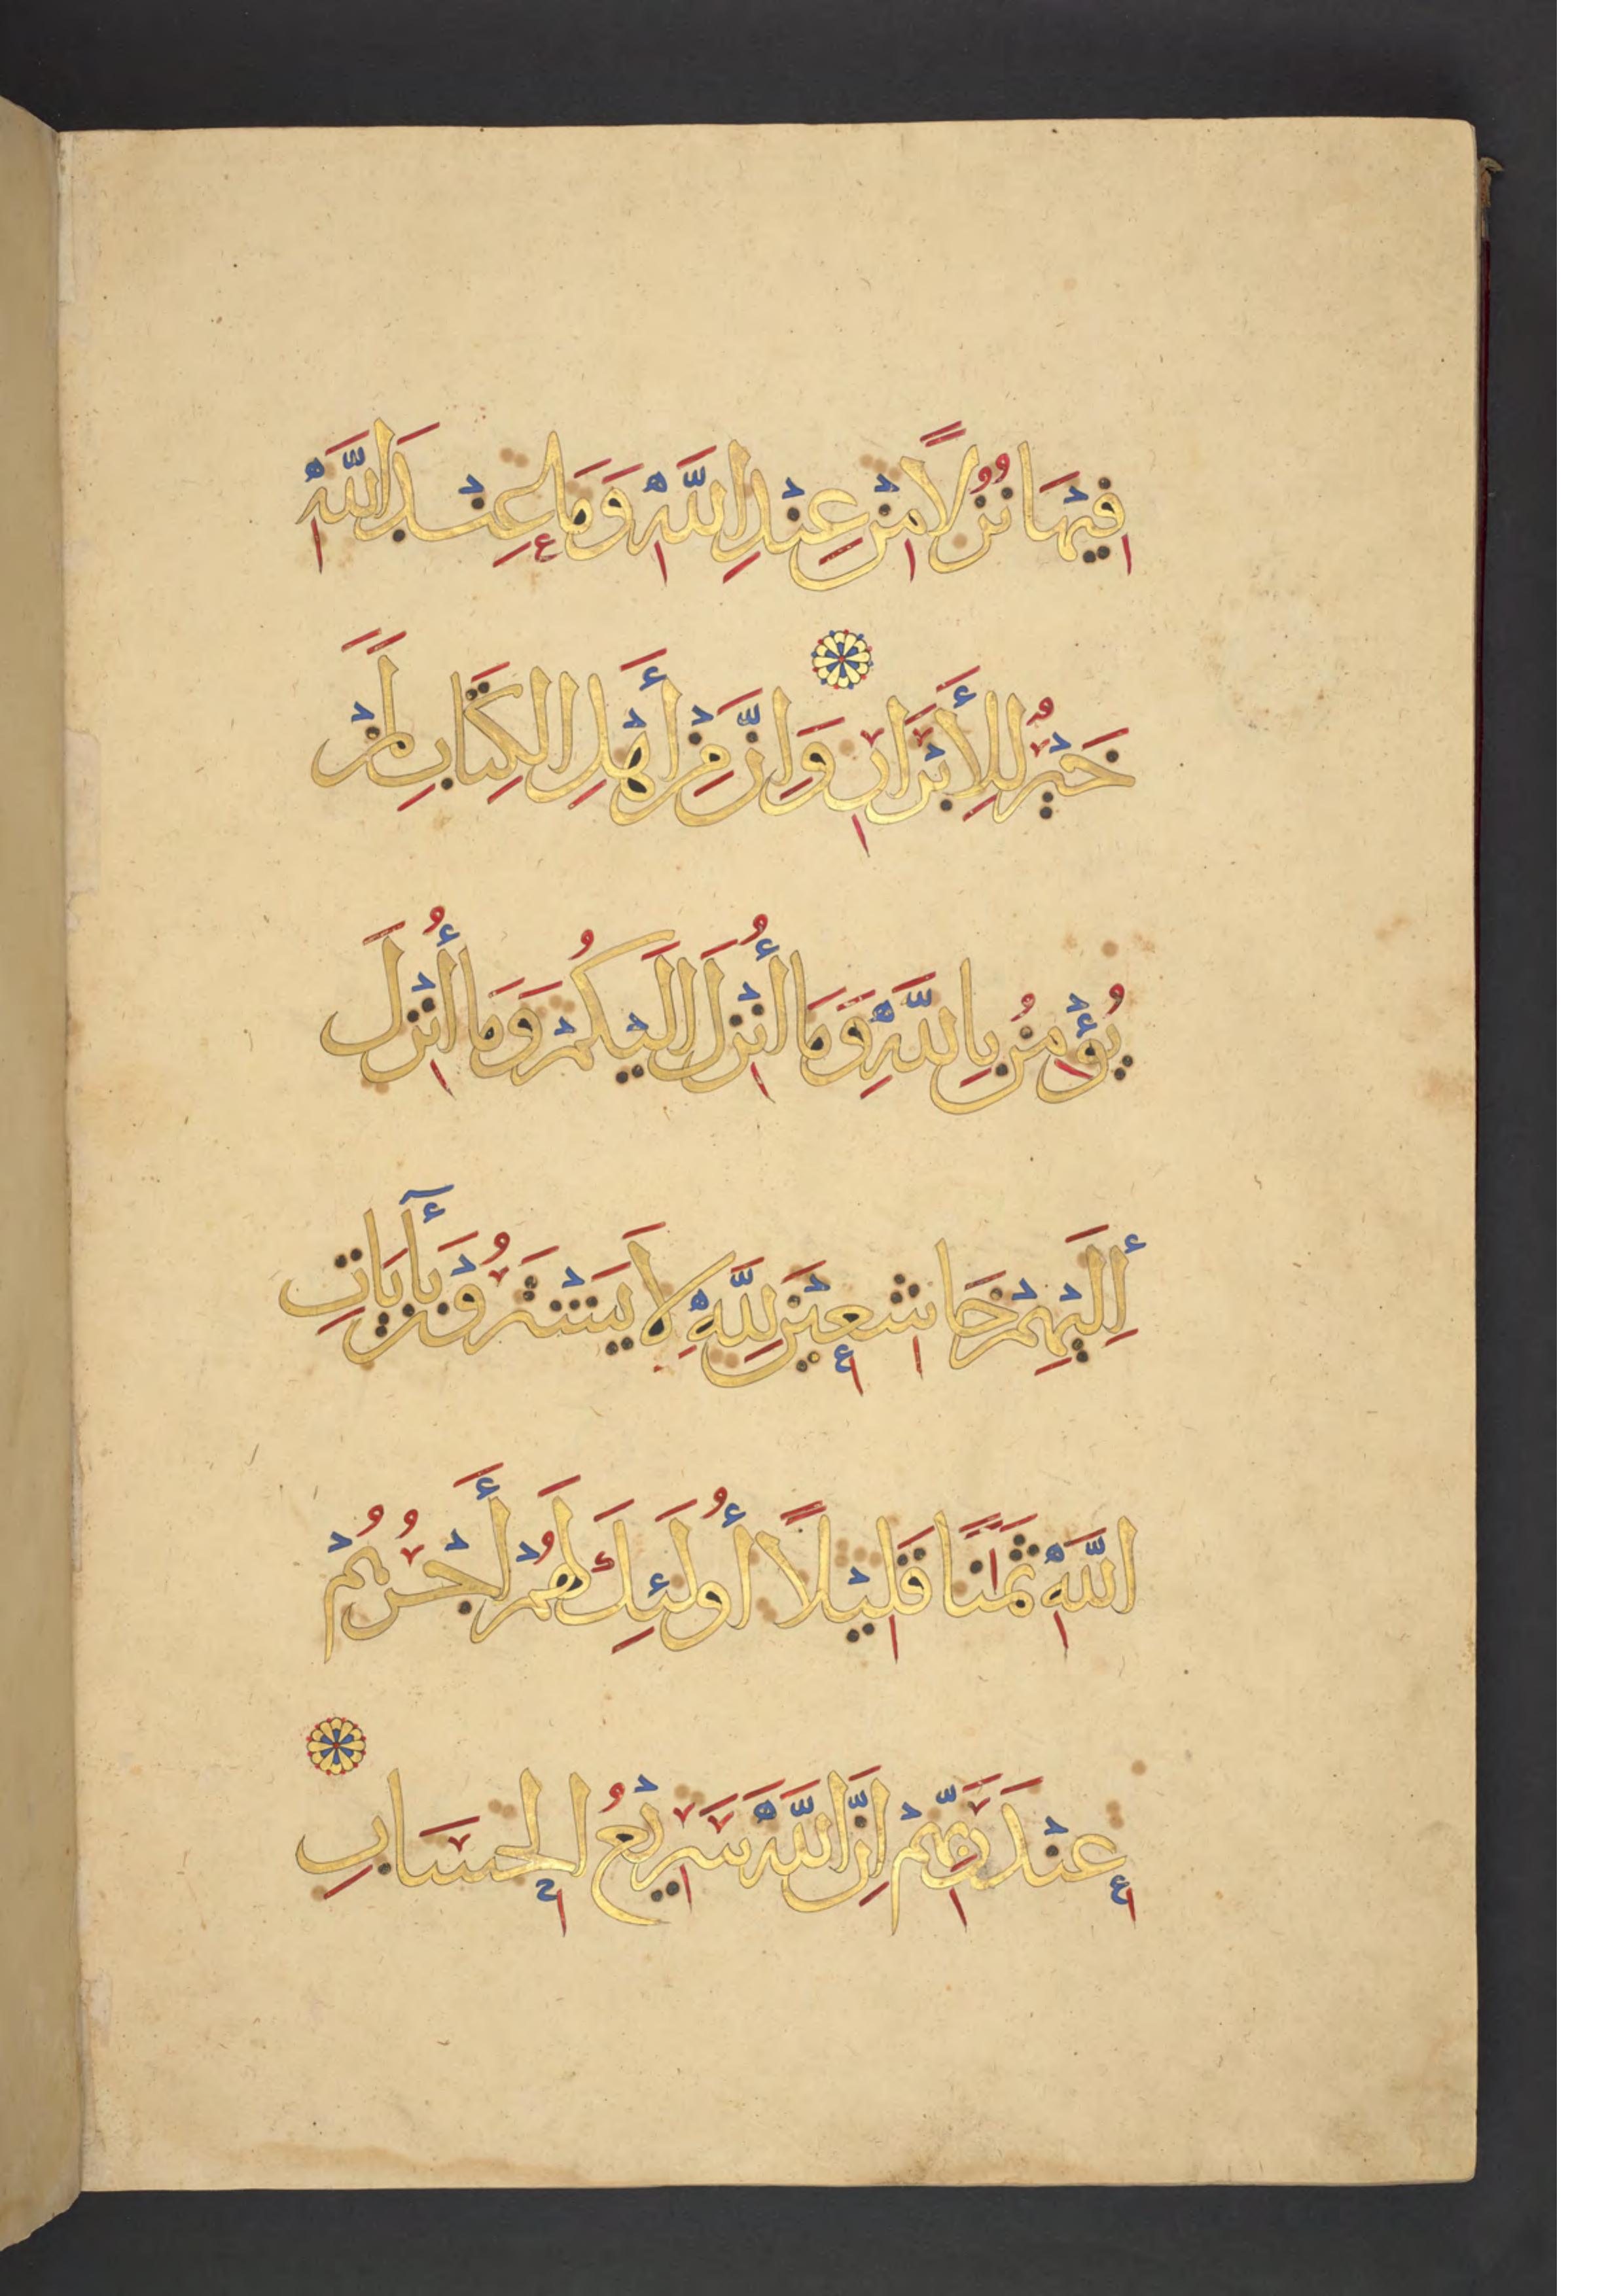 فِيهَا نُزُلًا مِنْ عِنْدِ اللَّهِ وَمَا عِنْدَ اللَّهِ
خَيْرٌ لِلْأَبْرَارِ وَإِنَّ مِنْ أَهْلِ الْكِتَابِ لَمَنْ
يُؤْمِنُ بِاللَّهِ وَمَا أُنْزِلَ إِلَيْكُمْ وَمَا أُنْزِلَ
إِلَيْهِمْ خَاشِعِينَ لِلَّهِ لَا يَشْتَرُونَ بِآيَاتِ
اللَّهِ ثَمَنًا قَلِيلًا أُولَئِكَ لَهُمْ أَجْرُهُمْ
عِنْدَ رَبِّهِمْ إِنَّ اللَّهَ سَرِيعُ الْحِسَابِ